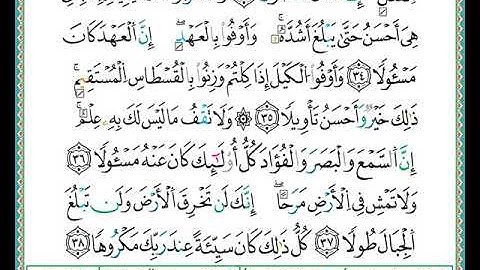 هِيَ أَحْسَنُ حَتَّىٰ يَبْلُغَ أَشُدَّهُۥ ۚ وَأَوْفُوا۟ بِٱلْعَهْدِ ۖ إِنَّ ٱلْعَهْدَ كَانَ
مَسْـُٔولًا ٣٤ وَأَوْفُوا۟ ٱلْكَيْلَ إِذَا كِلْتُمْ وَزِنُوا۟ بِٱلْقُسْطَاسِ ٱلْمُسْتَقِيمِ ۚ
ذَٰلِكَ خَيْرٌ وَأَحْسَنُ تَأْوِيلًا ٣٥ ۞ وَلَا تَقْفُ مَا لَيْسَ لَكَ بِهِۦ عِلْمٌ ۚ
إِنَّ ٱلسَّمْعَ وَٱلْبَصَرَ وَٱلْفُؤَادَ كُلُّ أُو۟لَـٰٓئِكَ كَانَ عَنْهُ مَسْـُٔولًا ٣٦
وَلَا تَمْشِ فِى ٱلْأَرْضِ مَرَحًا ۖ إِنَّكَ لَن تَخْرِقَ ٱلْأَرْضَ وَلَن تَبْلُغَ
ٱلْجِبَالَ طُولًا ٣٧ كُلُّ ذَٰلِكَ كَانَ سَيِّئَةً عِندَ رَبِّكَ مَكْرُوهًا ٣٨